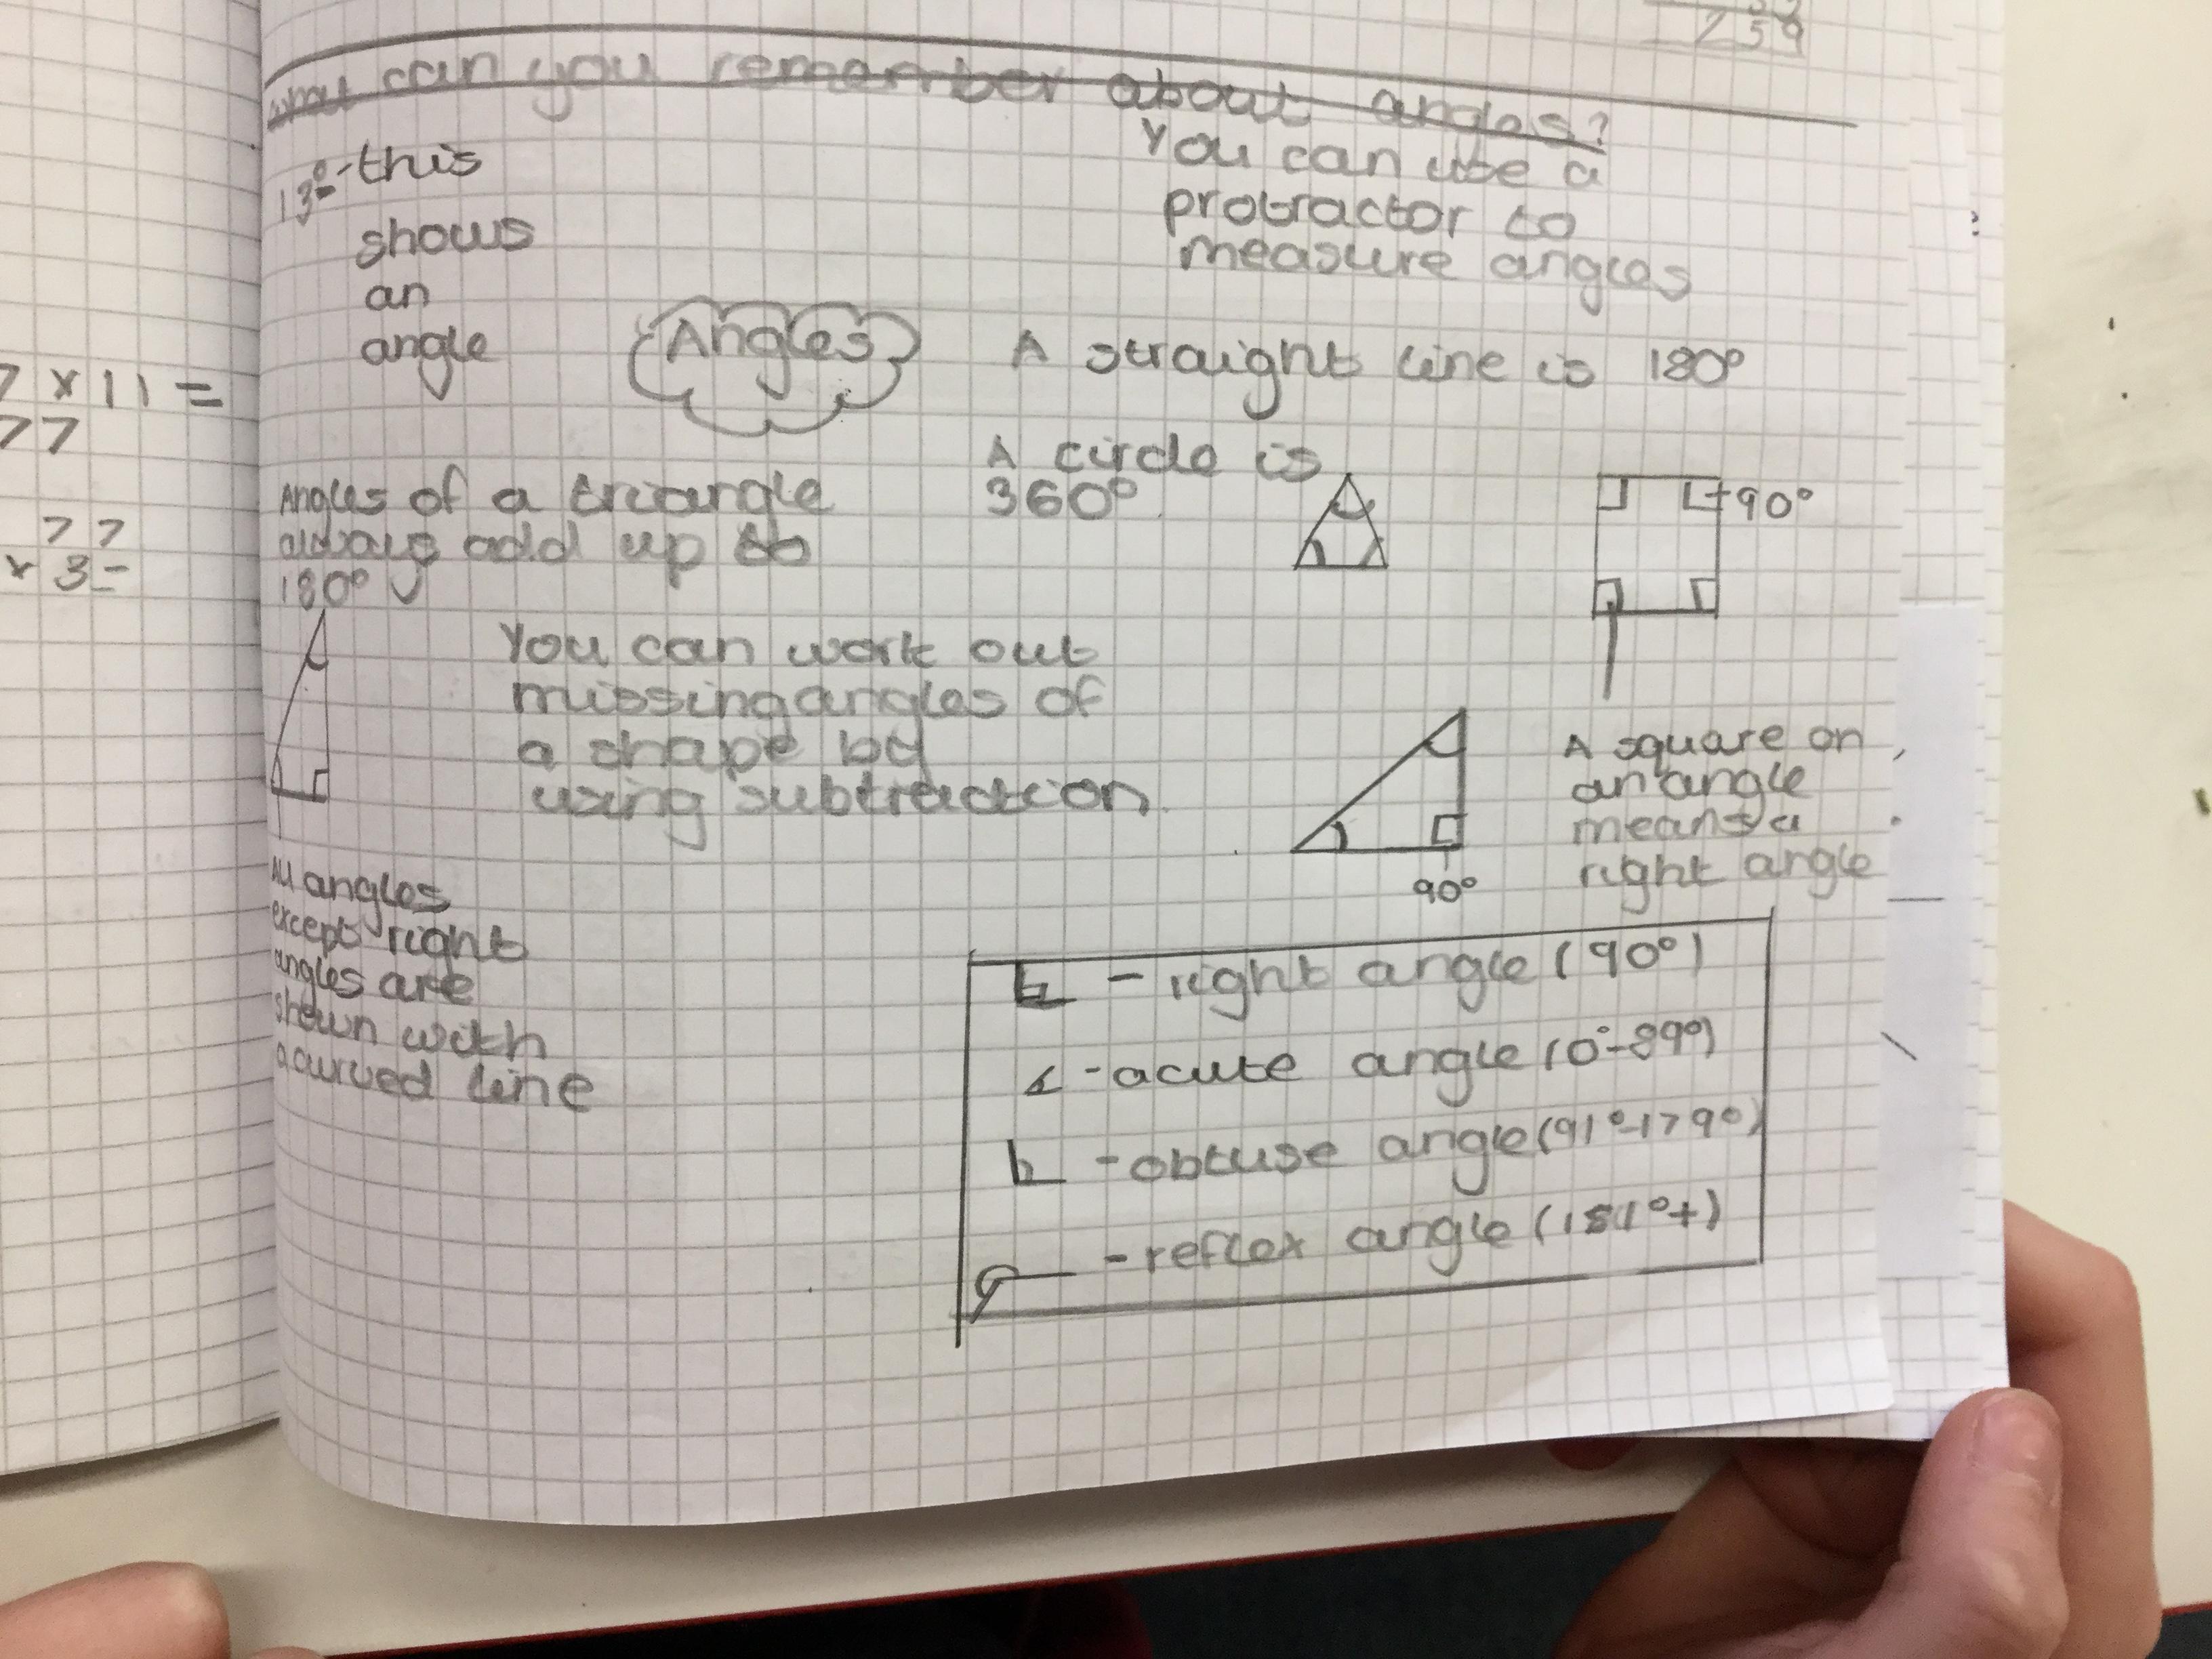 259
what can you remember about angles?
13° - this
shows
an
angle
You can use a
protractor to
measure angles
Angles
A straight line is 180°
A circle is
360°
90°
Angles of a triangle
always add up to
180°
You can work out
missing angles of
a shape by
using subtraction
90°
A square on
an angle
means a
right angle
All angles
except right
angles are
shown with
a curved line
- right angle (90°)
- acute angle (0°-89°)
- obtuse angle (91°-179°)
- reflex angle (181°+)
7 x 11 =
77
77
x 3